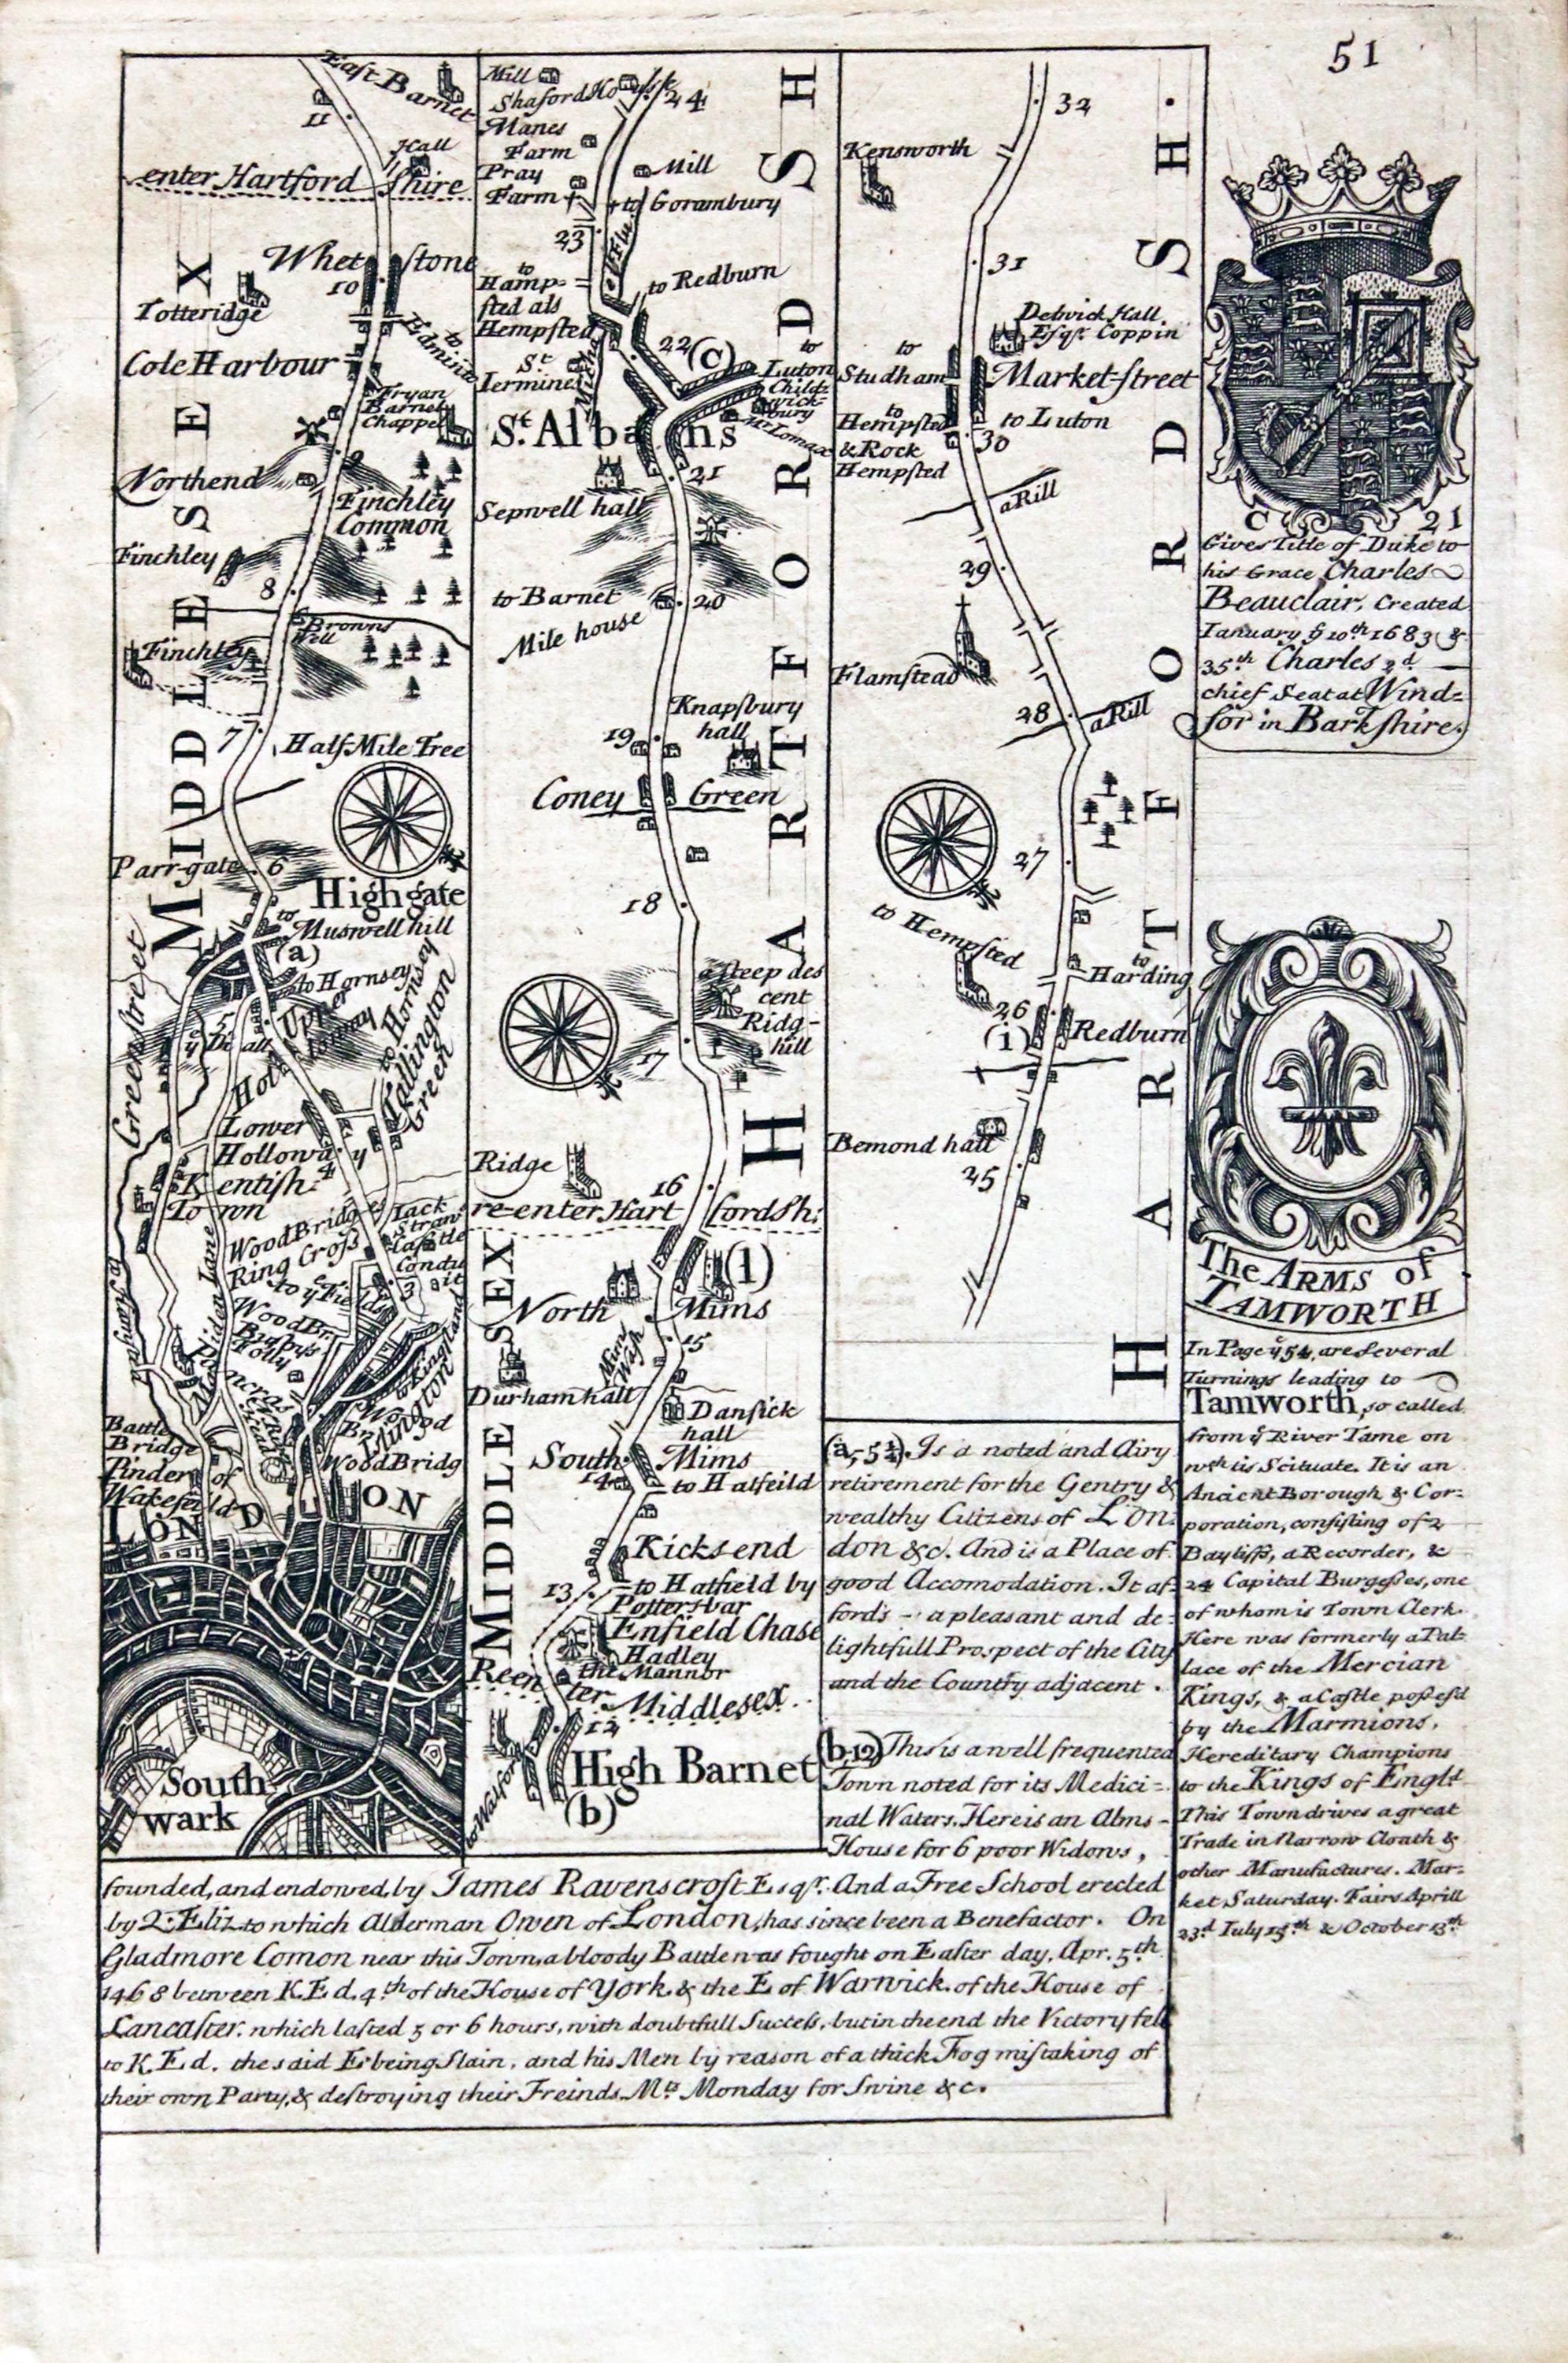 51
East Barnet
11
Hall
enter Hartford shire
Whet stone
10
Totteridge
to Edminto
Cole Harbour
Fryan
Barnet
Chappel
9
Northend
Finchley
Common
Finchley
8
Browns
Well
Finchley
7
Half Mile Tree
Parr-gate
6
Highgate
to
Muswell hill
(a)
to Hornsey
Green street
5
Upper
Hollo way
to Hornsey
Tallington
Green
Lower
Holloway
4
Kentish
Town
Wood Bridge
Ring Cross
Jack
Straws
Castle
Condu
it
to ye Fields
3
Maiden Lane
Wood Br.
Busbys
Folly
Pancras
to Kingland
Islington
Wood
Br.
Wood Bridg
Battle
Bridge
Pinder of
Wakefeild
LONDON
South
wark
MIDDLESEX
Mill
Shaford House
24
Manes
Farm
Pray
Farm
Mill
to Gorambury
23
to
Hamp=
sted als
Hempsted
to Redburn
22 (c)
to
Luton
Child=
wick=
bury
Mr Lomax
St.
Iermine
St. Albans
21
Sepwell hall
to Barnet
20
Mile house
Knapsbury
hall
19
Coney Green
18
a steep des
cent
Ridg-
hill
17
Ridge
16
re-enter Hart fordshi:
(1)
North Mims
15
Mims
Wash
Durham hall
Dansick
hall
South Mims
14
to Hatfeild
Kicksend
13
to Hatfield by
Pottersbar
Enfield Chase
Hadley
the Mannor
Reen ter Middlesex
12
to Watford
High Barnet
(b)
MIDDLESEX
HARTFORDSH
32
Kensworth
31
Debvick Hall.
Esqr. Coppin
to
Studham
Market-street
to
Hempsted
& Rock
Hempsted
to Luton
30
a Rill
29
Flamstead
28
a Rill
27
to Hempsted
to
Harding
26
(i)
Redburn
Bemond hall
25
HARTFORDSH.
C 21
Gives Title of Duke to
his Grace Charles
Beauclair, Created
Ianuary ye 10th 1683 &
35th Charles 2d.
chief Seat at Wind=
sor in Barkshire.
The ARMS of
TAMWORTH
In Page ye 54, are several
Turnings leading to
Tamworth, so called
from ye River Tame on
wch tis Scituate. It is an
Ancient Borough & Cor-
poration, consisting of 2
Bayliffs, a Recorder, &
24 Capital Burgesses, one
of whom is Town Clerk.
Here was formerly a Pal-
lace of the Mercian
Kings, & a Castle possess'd
by the Marmions,
Hereditary Champions
to the Kings of Englđ.
This Town drives a great
Trade in Narrow Cloath &
other Manufactures. Mar-
ket Saturday. Fairs Aprill
23d. Iuly 15th & October 13th
(a, 5¼). Is a noted and Airy
retirement for the Gentry &
wealthy Citizens of LON-
don &c. And is a Place of
good Accomodation. It af-
fords - a pleasant and de-
lightfull Prospect of the City
and the Country adjacent.
(b-12) This is a well frequented
Town noted for its Medici=
nal Waters. Here is an Alms-
House for 6 poor Widows,
founded, and endowed, by Iames Ravenscroft Esqr. And a Free School erected
by Q. Eliz. to which Alderman Owen of London, has since been a Benefactor. On
Gladmore Comon near this Town, a bloody Battle was fought on Easter day, Apr. 5th.
1468 between K. Ed. 4th of the House of York & the E of Warwick of the House of
Lancaster. which lasted 5 or 6 hours, with doubtfull Success, but in the end the Victory fell
to K. Ed. the said E. being Slain, and his Men by reason of a thick Fog mistaking of
their own Party, & destroying their Freinds. Mt. Monday for Swine &c.